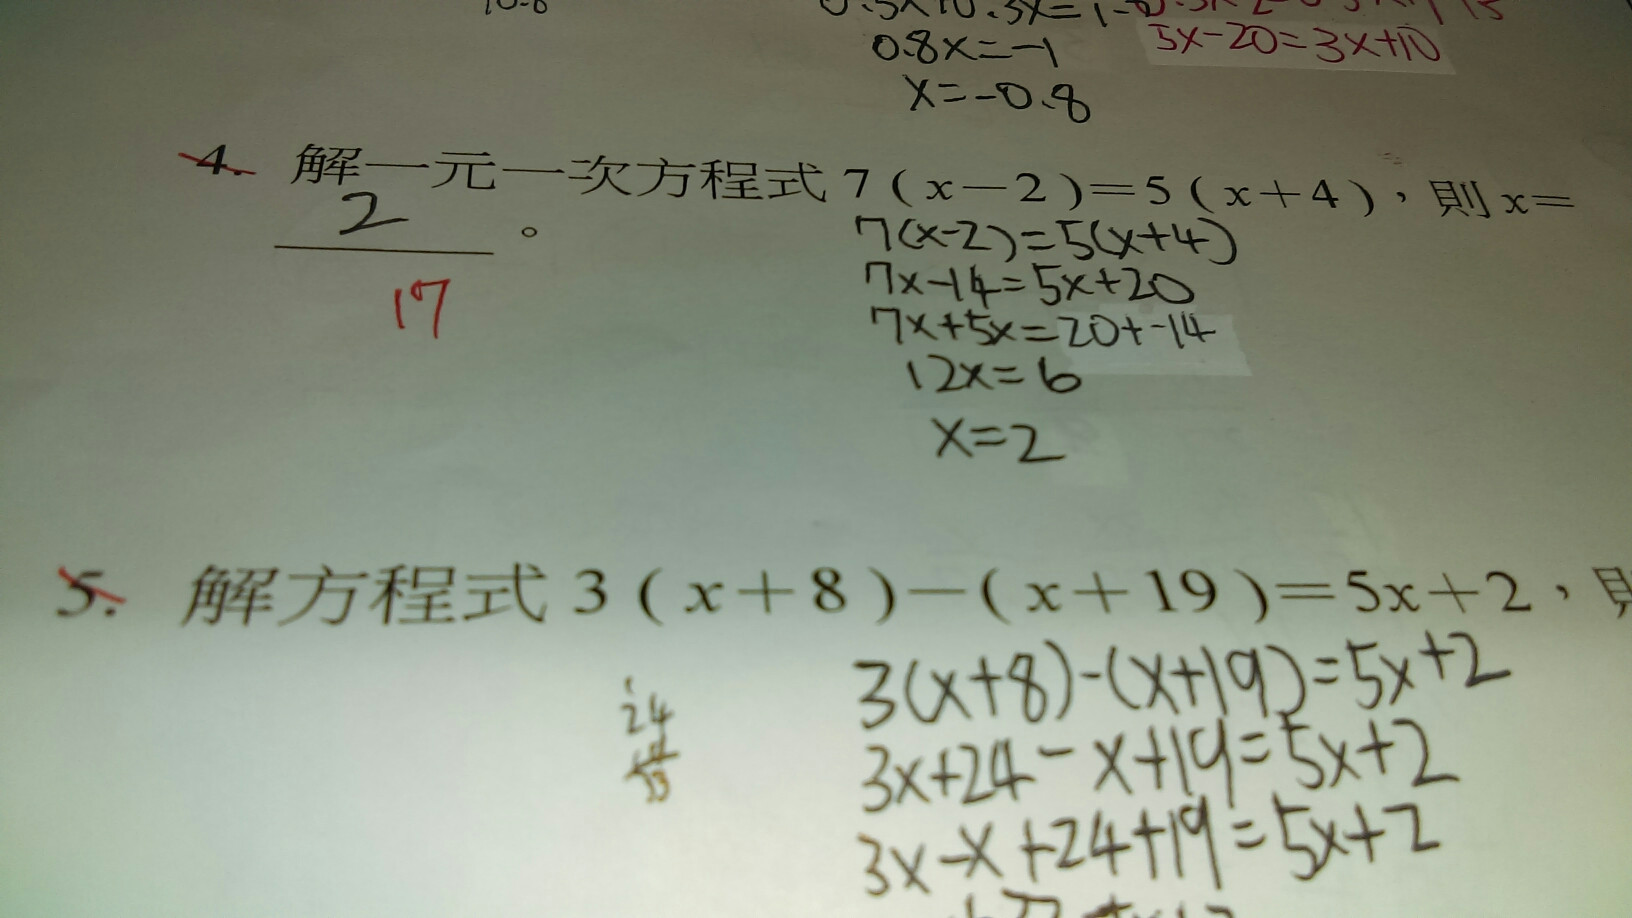 0.8x=-1
5x-20=3x+10
x=-0.8
4. 解一元一次方程式 7(x-2)=5(x+4),則x=
2 。
17
7(x-2)=5(x+4)
7x-14=5x+20
7x+5x=20+-14
12x=6
x=2
5. 解方程式 3(x+8)-(x+19)=5x+2,則
3(x+8)-(x+19)=5x+2
24
3x+24-x+19=5x+2
3x-x+24+19=5x+2